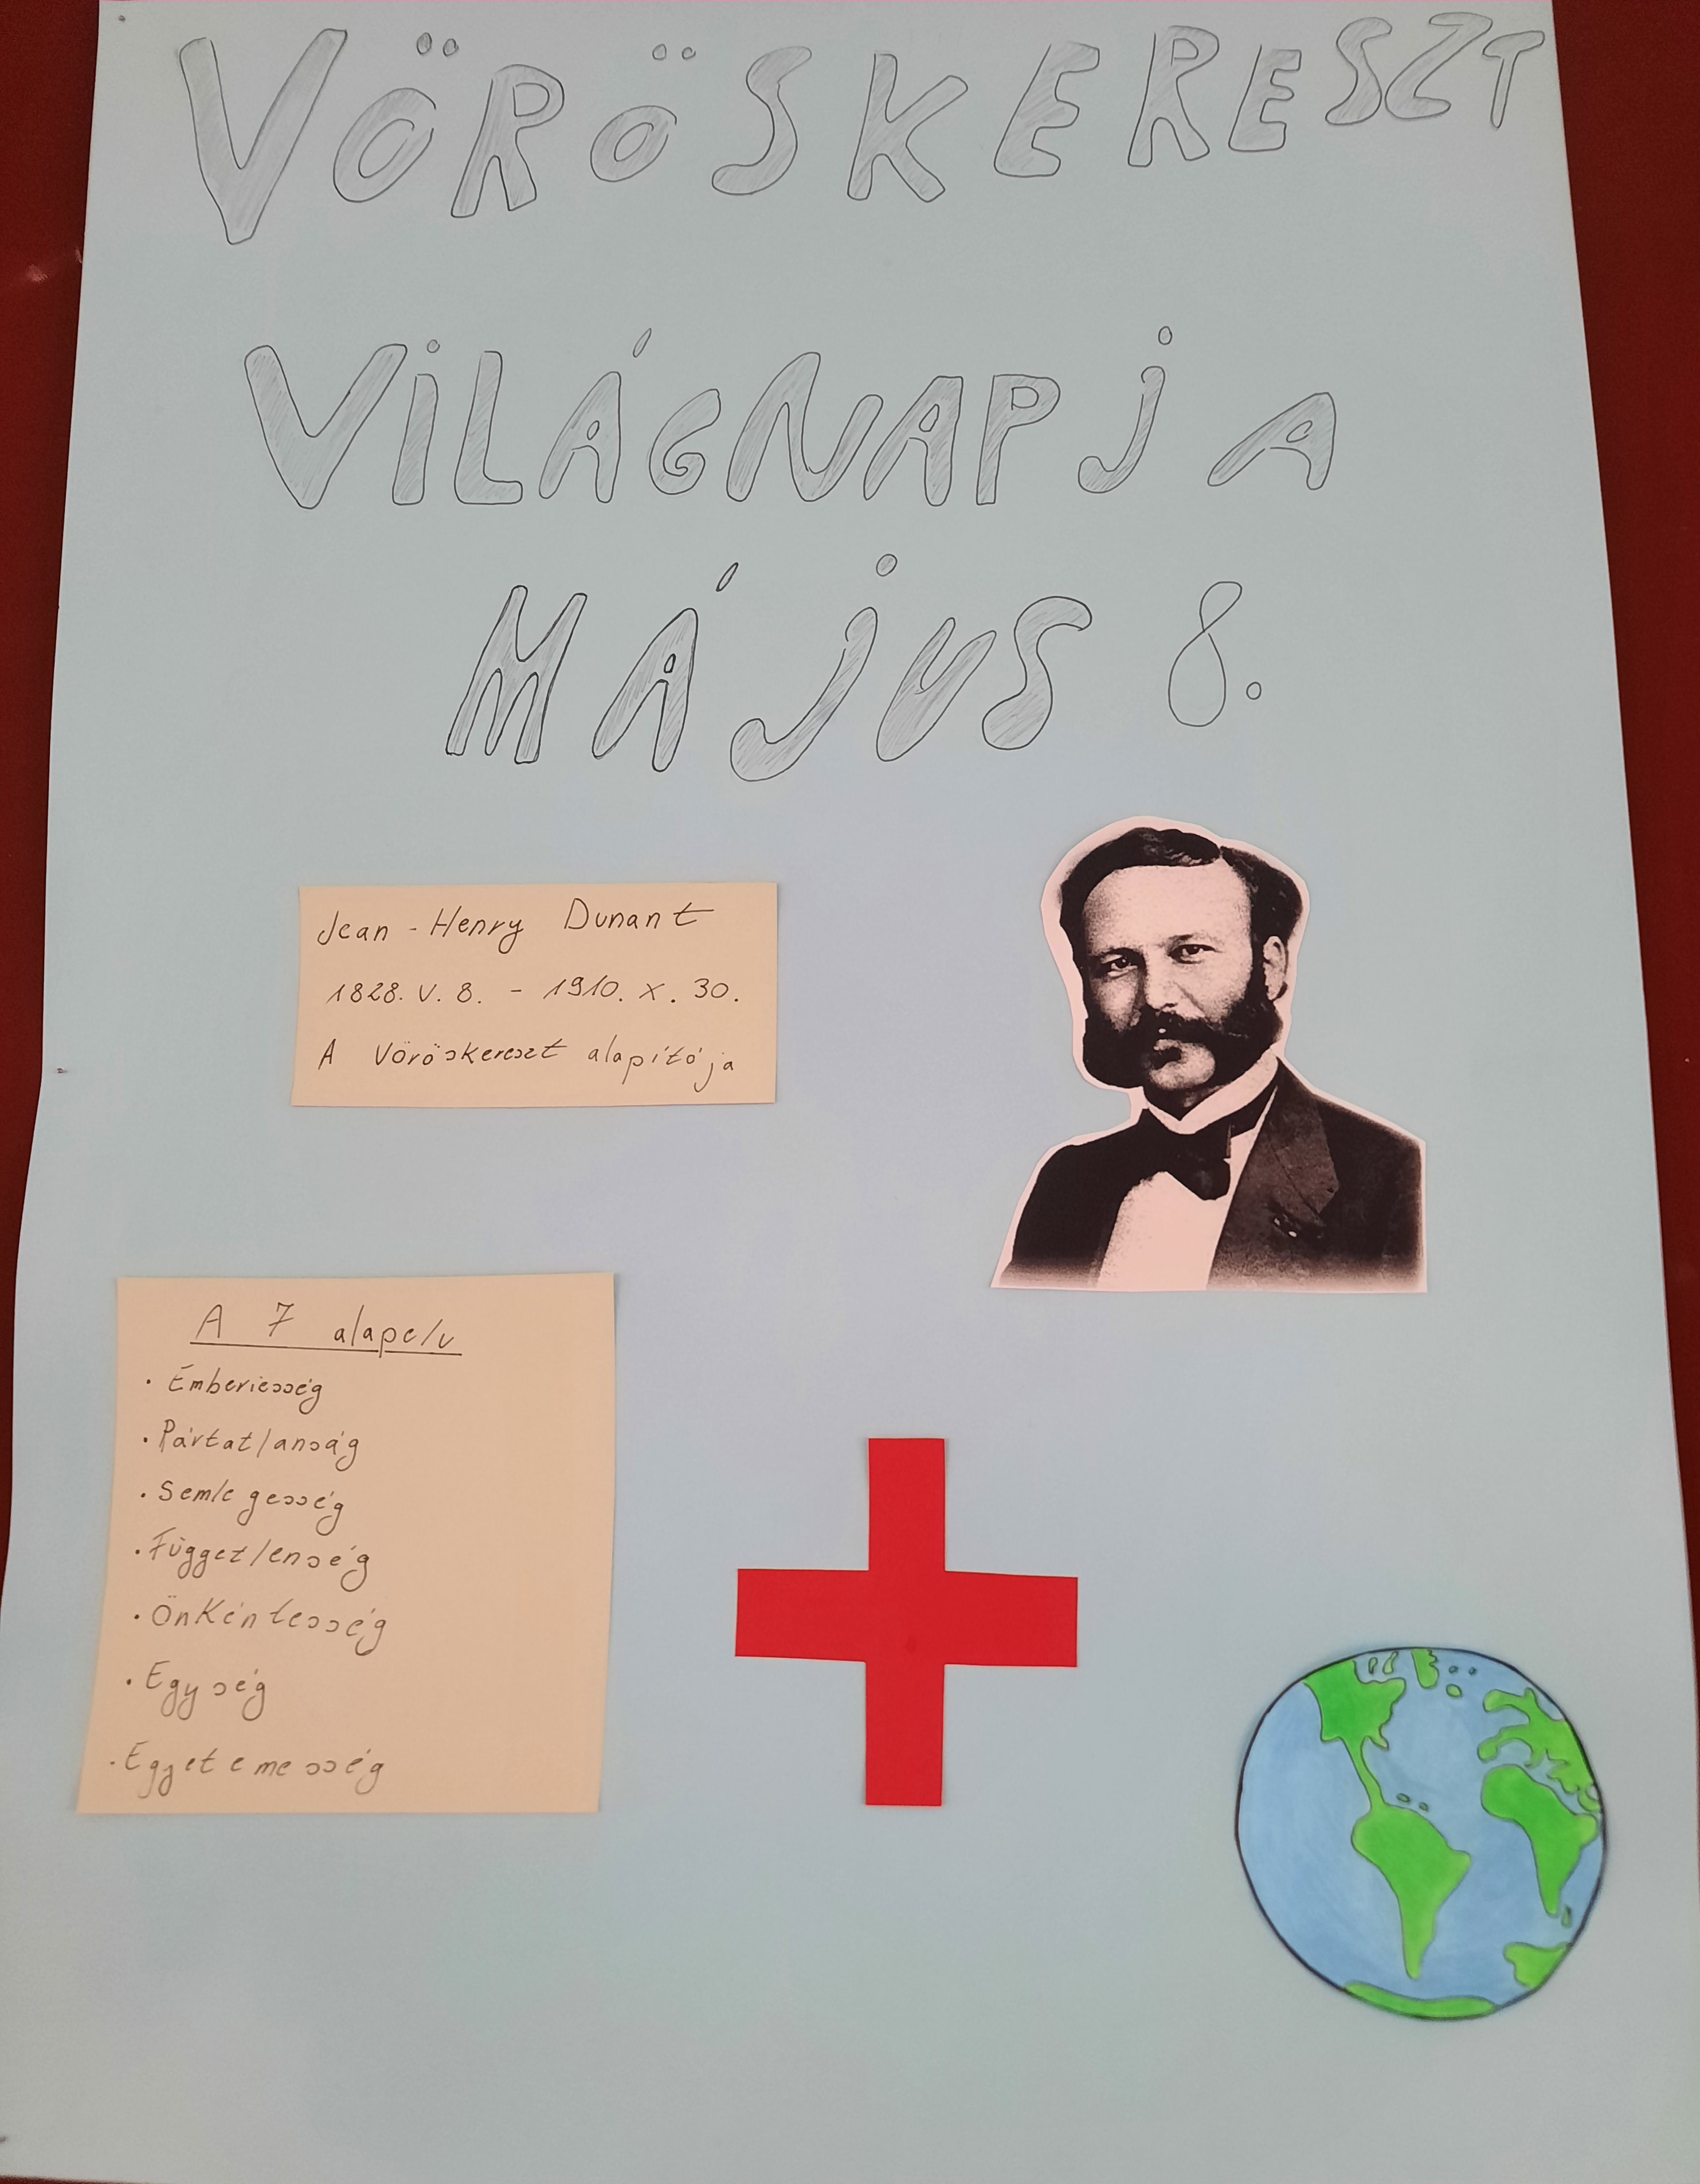 VÖRÖSKERESZT
VILÁGNAPJA
MÁJUS 8.
Jean-Henry Dunant
1828. V. 8. - 1910. X. 30.
A Vöröskereszt alapítója
A 7 alapelv
• Emberiesség
• Pártatlanság
• Semlegesség
• Függetlenség
• Önkéntesség
• Egység
• Egyetemesség